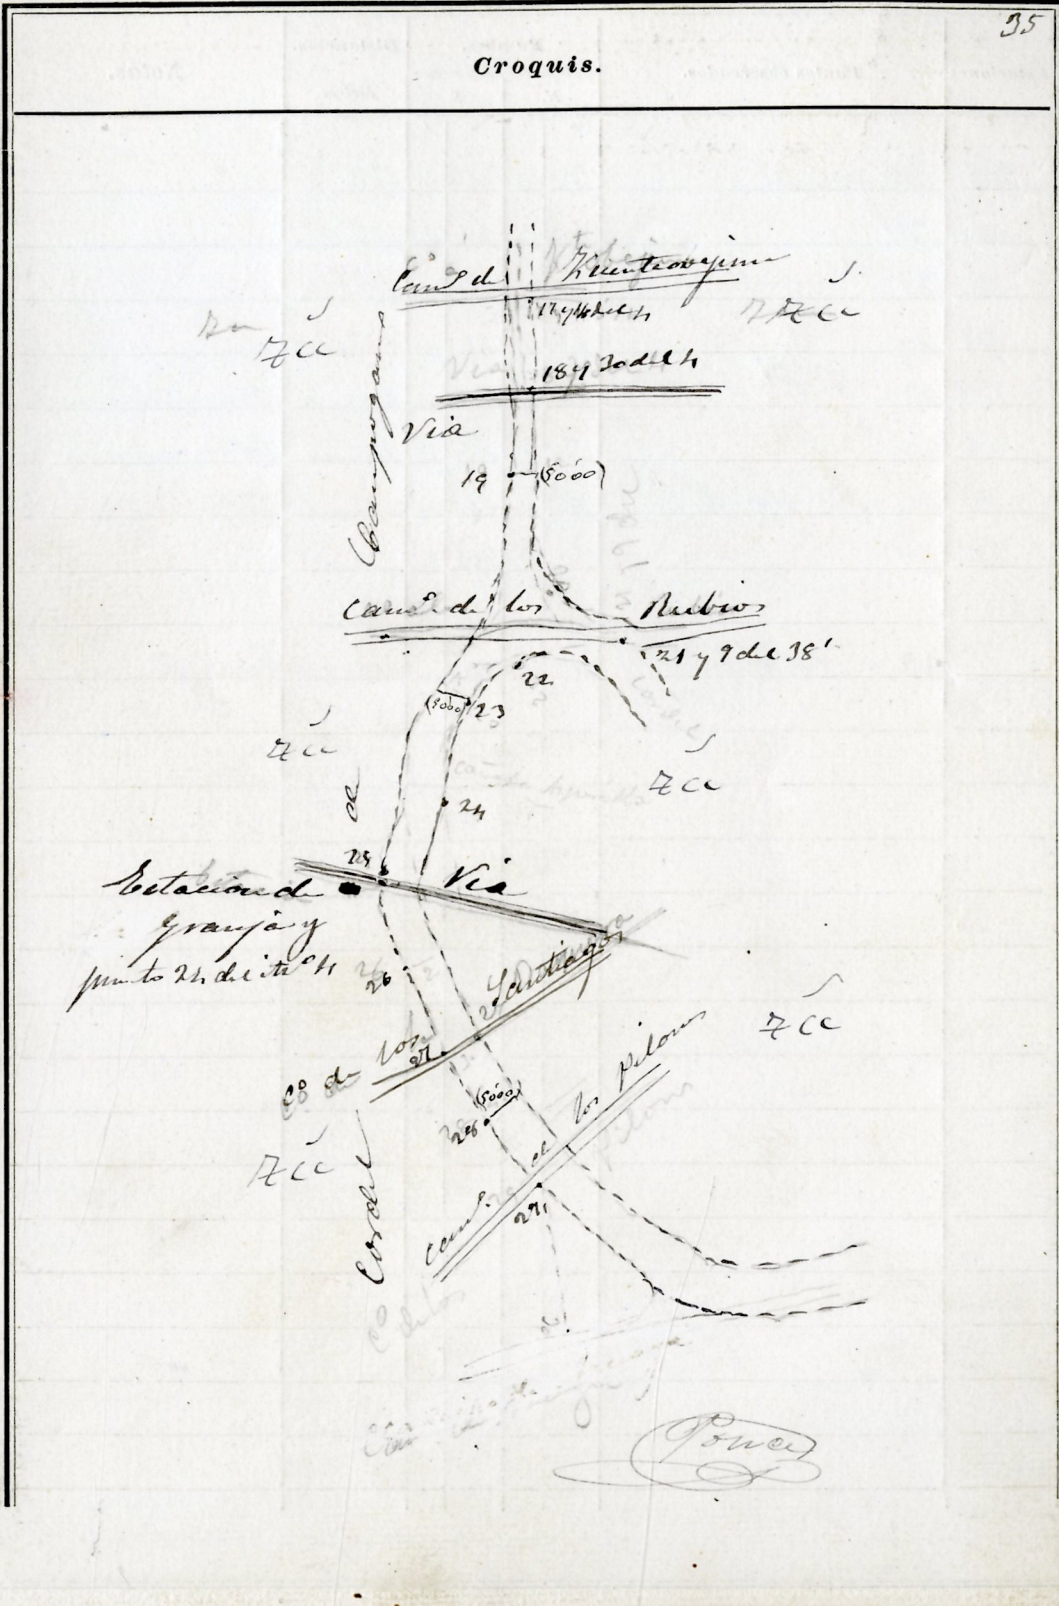 35
Croquis.
Cam.º de Fuenteovejuna
17 y 16 del 4
7 Cc
7 Cc
18 y 30 del 4
Via
19 (50'00)
Cam.º de los Rubios
21 y 9 del 38'
22
(50'00) 23
7 Cc
7 Cc
24
25
Estacion de Via
Granja y
punto 24 del itº 4
26
Cº de los Santiagos
27
7 Cc
(50'00)
28
7 Cc
Cam.º de los Pilones
29
Cordel de Campogan
Ponce